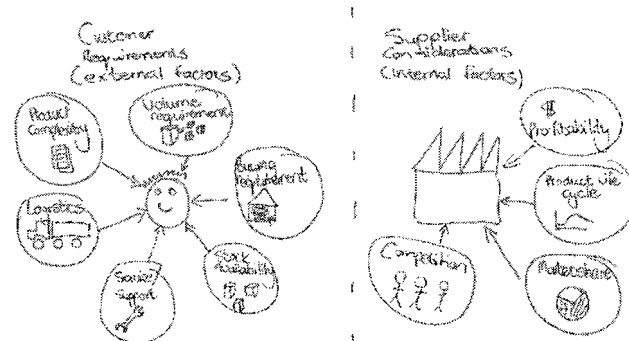 Customer
Requirements
(external factors)
Product
Complexity
Volume
requirement
Buying
requirement
Logistics
Service
Support
Stock
Availability
Supplier
Considerations
(internal factors)
$
Profitability
Product
cycle
Marketshare